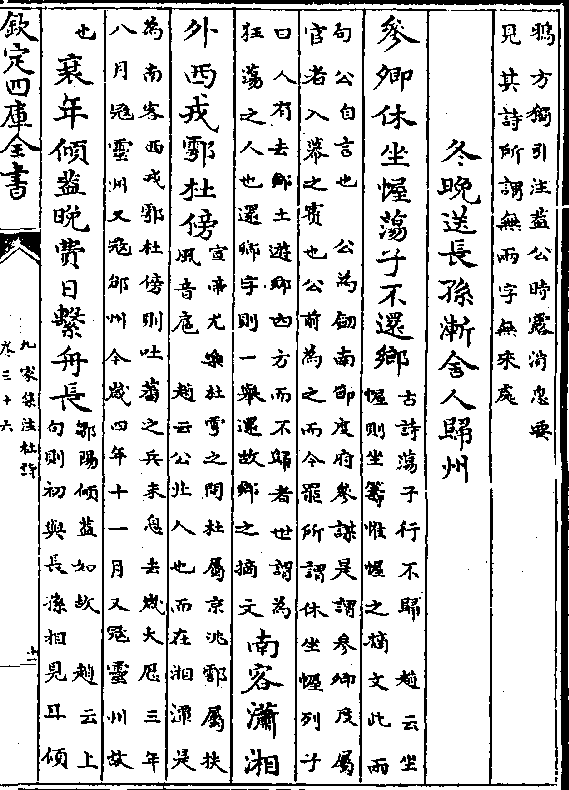 方獨引注蓋公時露消息要
見其詩所謂無兩字無來處
冬晚送長孫漸舍人歸州
參卿休坐幄蕩子不還鄉
古詩蕩子行不歸 趙云坐
幄則坐籌惟幄之摘文此兩
句公自言也 公為劒南節度府參謀是謂參卿度屬
官者入幕之賓也公前為之而今罷所謂休坐幄列子
曰人有去鄉土遊鄉四方而不歸者世謂為
狂蕩之人也還鄉字則一舉還故鄉之摘文
南客瀟湘
外西戎鄠杜傍
宣帝尤樂杜鄠之間杜屬京兆鄠屬扶
風音扈 趙云公北人也而在湘潭是
為南客西戎鄠杜傍則吐蕃之兵未息去歲大厯三年
八月冦靈州又冦邠州今歲四年十一月又冦靈州故
也
衰年傾蓋晚費日繫舟長
鄒陽傾蓋如故 趙云上
句則初與長孫相見耳傾
欽定四庫全書
九家集注杜詩
卷三十六